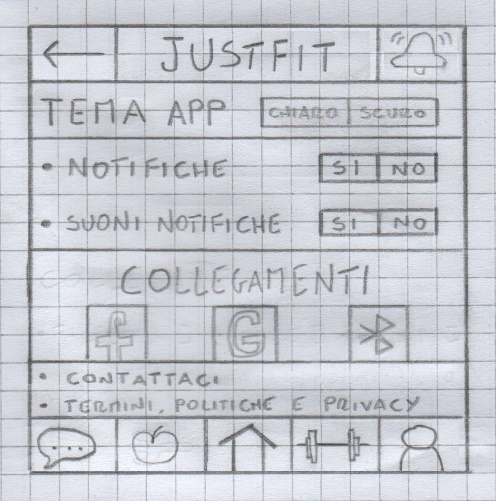 JUSTFIT
TEMA APP CHIARO SCURO
• NOTIFICHE SI NO
• SUONI NOTIFICHE SI NO
COLLEGAMENTI
f G
• CONTATTACI
• TERMINI, POLITICHE E PRIVACY